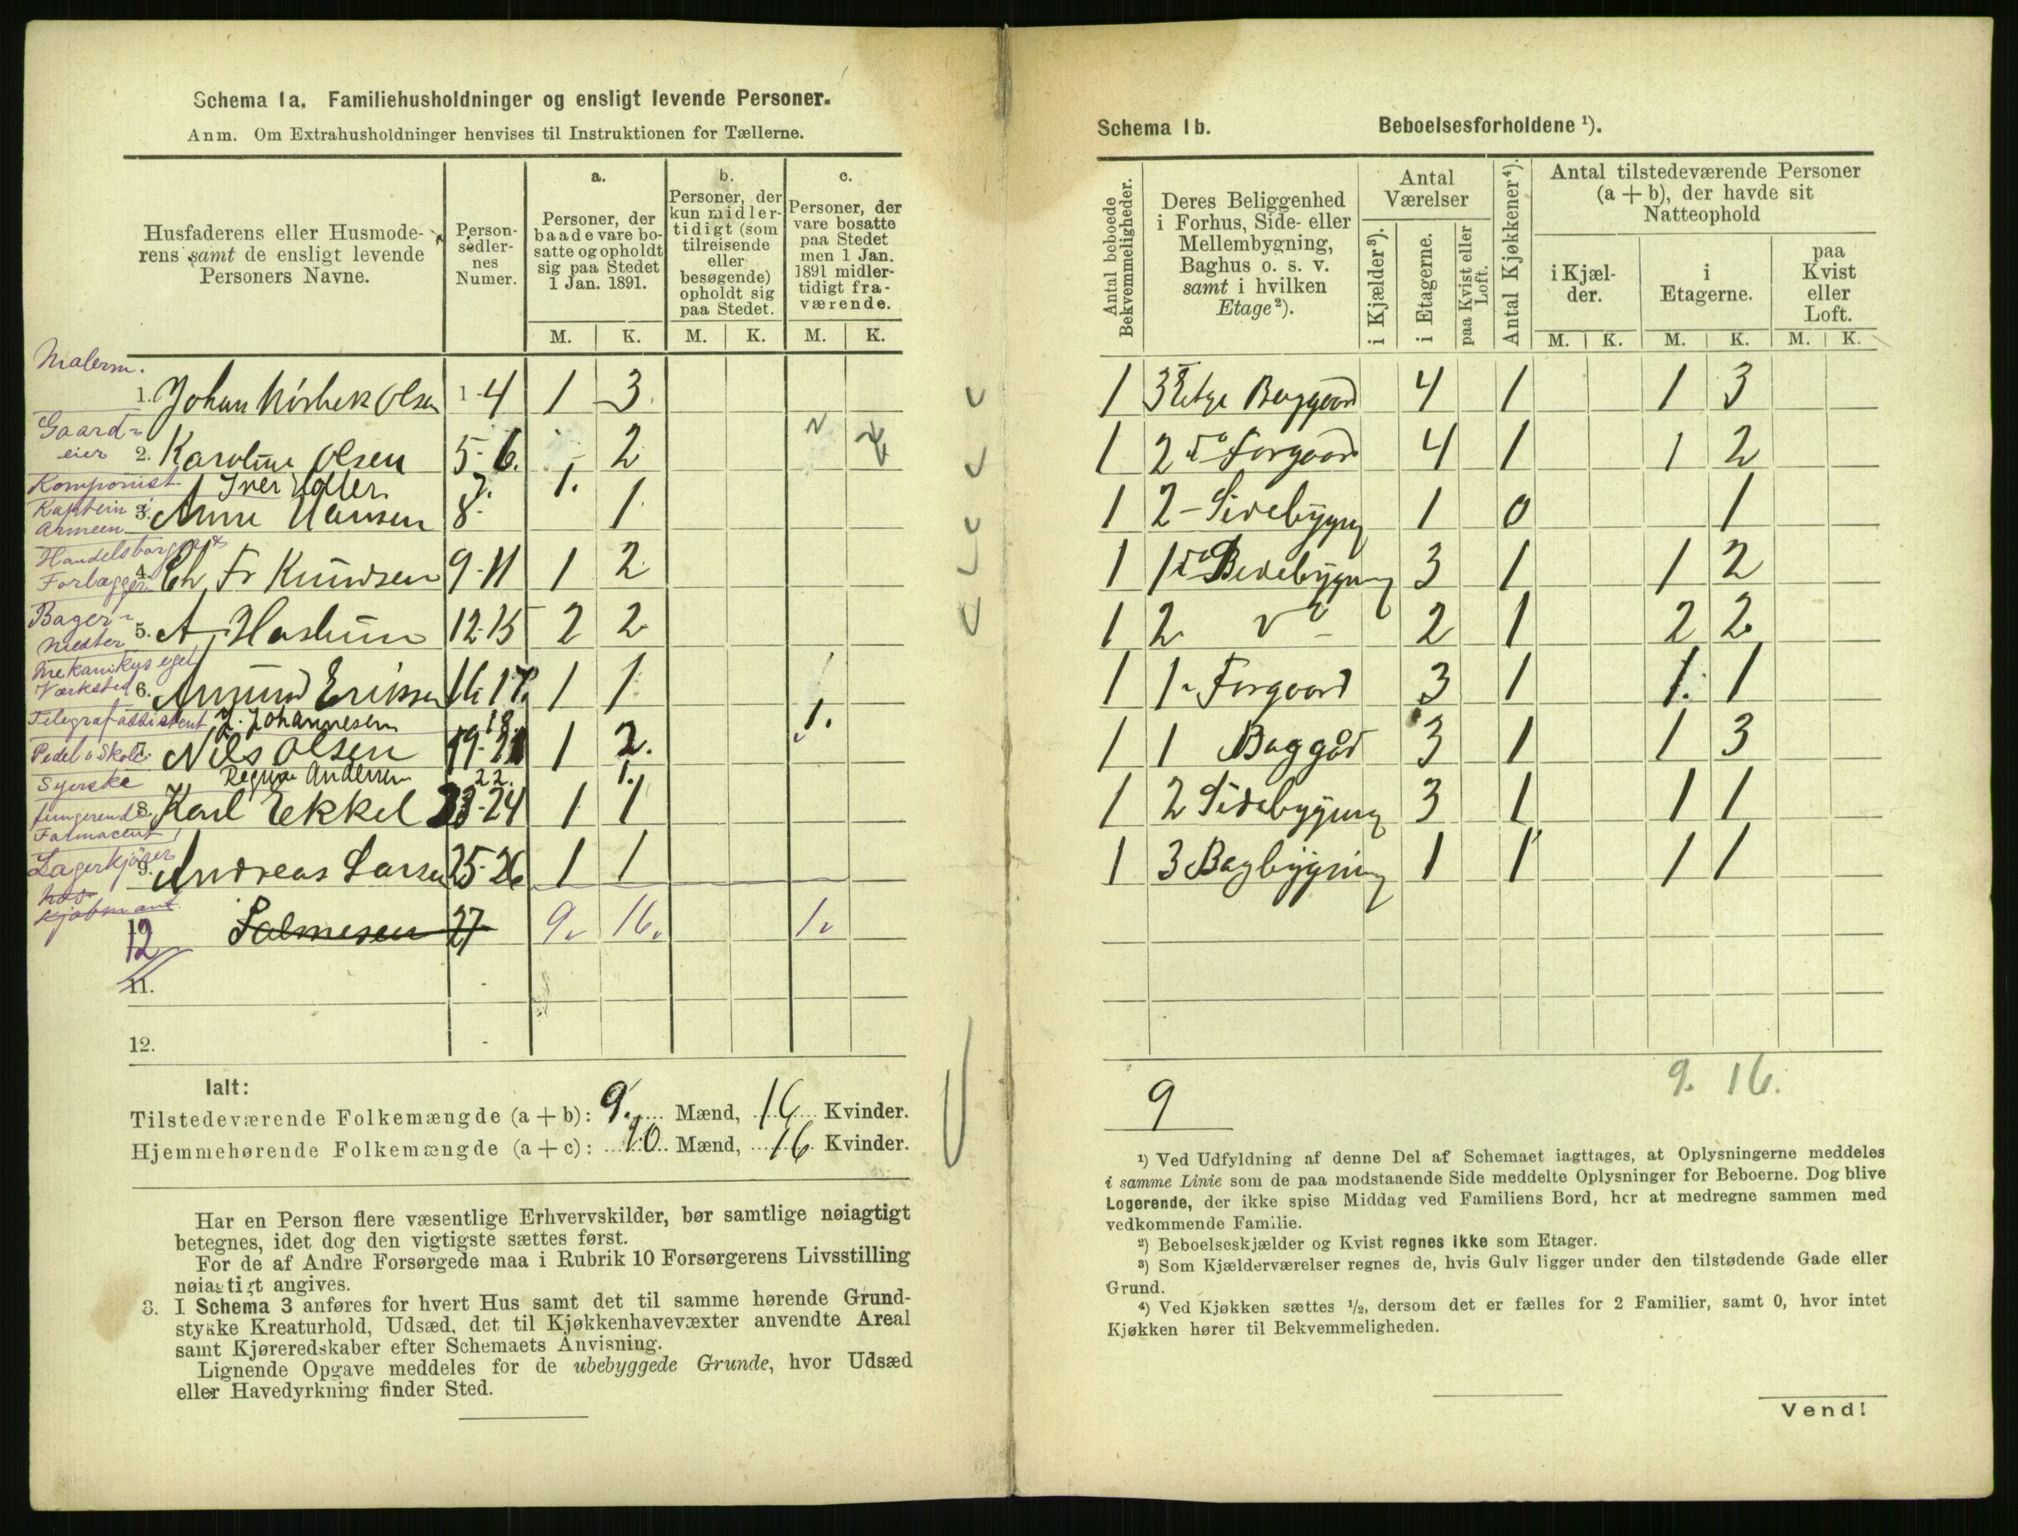 Schema 1a. Familiehusholdninger og ensligt levende Personer.
Anm. Om Extrahusholdninger henvises til Instruktionen for Tællerne.
Husfaderens eller Husmode-
rens samt de ensligt levende
Personers Navne.
Person-
sedler-
nes
Numer.
a.
Personer, der
baade vare bo-
satte og opholdt
sig paa Stedet
1 Jan. 1891.
b.
Personer, der
kun midler-
tidigt (som
tilreisende
eller
besøgende)
opholdt sig
paa Stedet.
c.
Personer, der
vare bosatte
paa Stedet
men 1 Jan.
1891 midler-
tidigt fra-
værende.
M. K. M. K. M. K.
Malerm.
1. Johan Olsen 1-4 1 3
Gaard-
eier 2. Karoline Olsen 5-6. 2
Komponist Iver Holter 7. 1.
Kaptein i
Armeen 3. Anne Hansen 8 1
Handelsborger &
Forlægger 4. Chr Fr Knudsen 9-11 1 2
Bager-
mester 5. A. 12-15 2 2
Mekanikus eget
Værksted 6. Amund Erikssen 16-17. 1 1
Telegrafassistent J. Johannesen 18. 1.
Pedel v Skole 7. Nils Olsen 19-21 1 2.
Syerske Regine Andersen 22. 1.
fungerende 8. Karl Ekkel 23-24 1 1
Farmaceut
Lagerkjører
9. Andreas Larsen 25-26 1 1
Salmesen 27 9. 16. 1.
12
11.
12.
Ialt:
Tilstedeværende Folkemængde (a + b): 9. Mænd, 16 Kvinder.
Hjemmehørende Folkemængde (a + c): 10 Mænd, 16 Kvinder.
Har en Person flere væsentlige Erhvervskilder, bør samtlige nøiagtigt
betegnes, idet dog den vigtigste sættes først.
For de af Andre Forsørgede maa i Rubrik 10 Forsørgerens Livsstilling
nøiagtigt angives.
3. I Schema 3 anføres for hvert Hus samt det til samme hørende Grund-
stykke Kreaturhold, Udsæd, det til Kjøkkenhavevæxter anvendte Areal
samt Kjøreredskaber efter Schemaets Anvisning.
Lignende Opgave meddeles for de ubebyggede Grunde, hvor Udsæd
eller Havedyrkning finder Sted.
Schema 1b. Beboelsesforholdene ¹).
Antal beboede
Bekvemmeligheder.
Deres Beliggenhed
i Forhus, Side- eller
Mellembygning,
Baghus o. s. v.
samt i hvilken
Etage ²).
Antal
Værelser
i Kjælder ³).
i Etagerne.
paa Kvist eller
Loft.
Antal Kjøkkener ⁴).
Antal tilstedeværende Personer
(a + b), der havde sit
Natteophold
i Kjæl-
der.
i
Etagerne.
paa
Kvist
eller
Loft.
M. K. M. K. M. K.
1 3 Etge Baggaard 4 1 1 3
1 2 do Forgaard 4 1 1 2
1 2 - Sidebygng 1 0 1
1 1 do Sidebygning 3 1 1 2
1 2 do - 2 1 2 2
1 1 - Forgaard 3 1 1. 1
1 1 Baggård 3 1 1 3
1 2 Sidebygning 3 1 1 1
1 3 Bagbygning 1 1 1 1
9 9. 16.
¹) Ved Udfyldning af denne Del af Schemaet iagttages, at Oplysningerne meddeles
i samme Linie som de paa modstaaende Side meddelte Oplysninger for Beboerne. Dog blive
Logerende, der ikke spise Middag ved Familiens Bord, her at medregne sammen med
vedkommende Familie.
²) Beboelseskjælder og Kvist regnes ikke som Etager.
³) Som Kjælderværelser regnes de, hvis Gulv ligger under den tilstødende Gade eller
Grund.
⁴) Ved Kjøkken sættes ½, dersom det er fælles for 2 Familier, samt 0, hvor intet
Kjøkken hører til Bekvemmeligheden.
Vend!